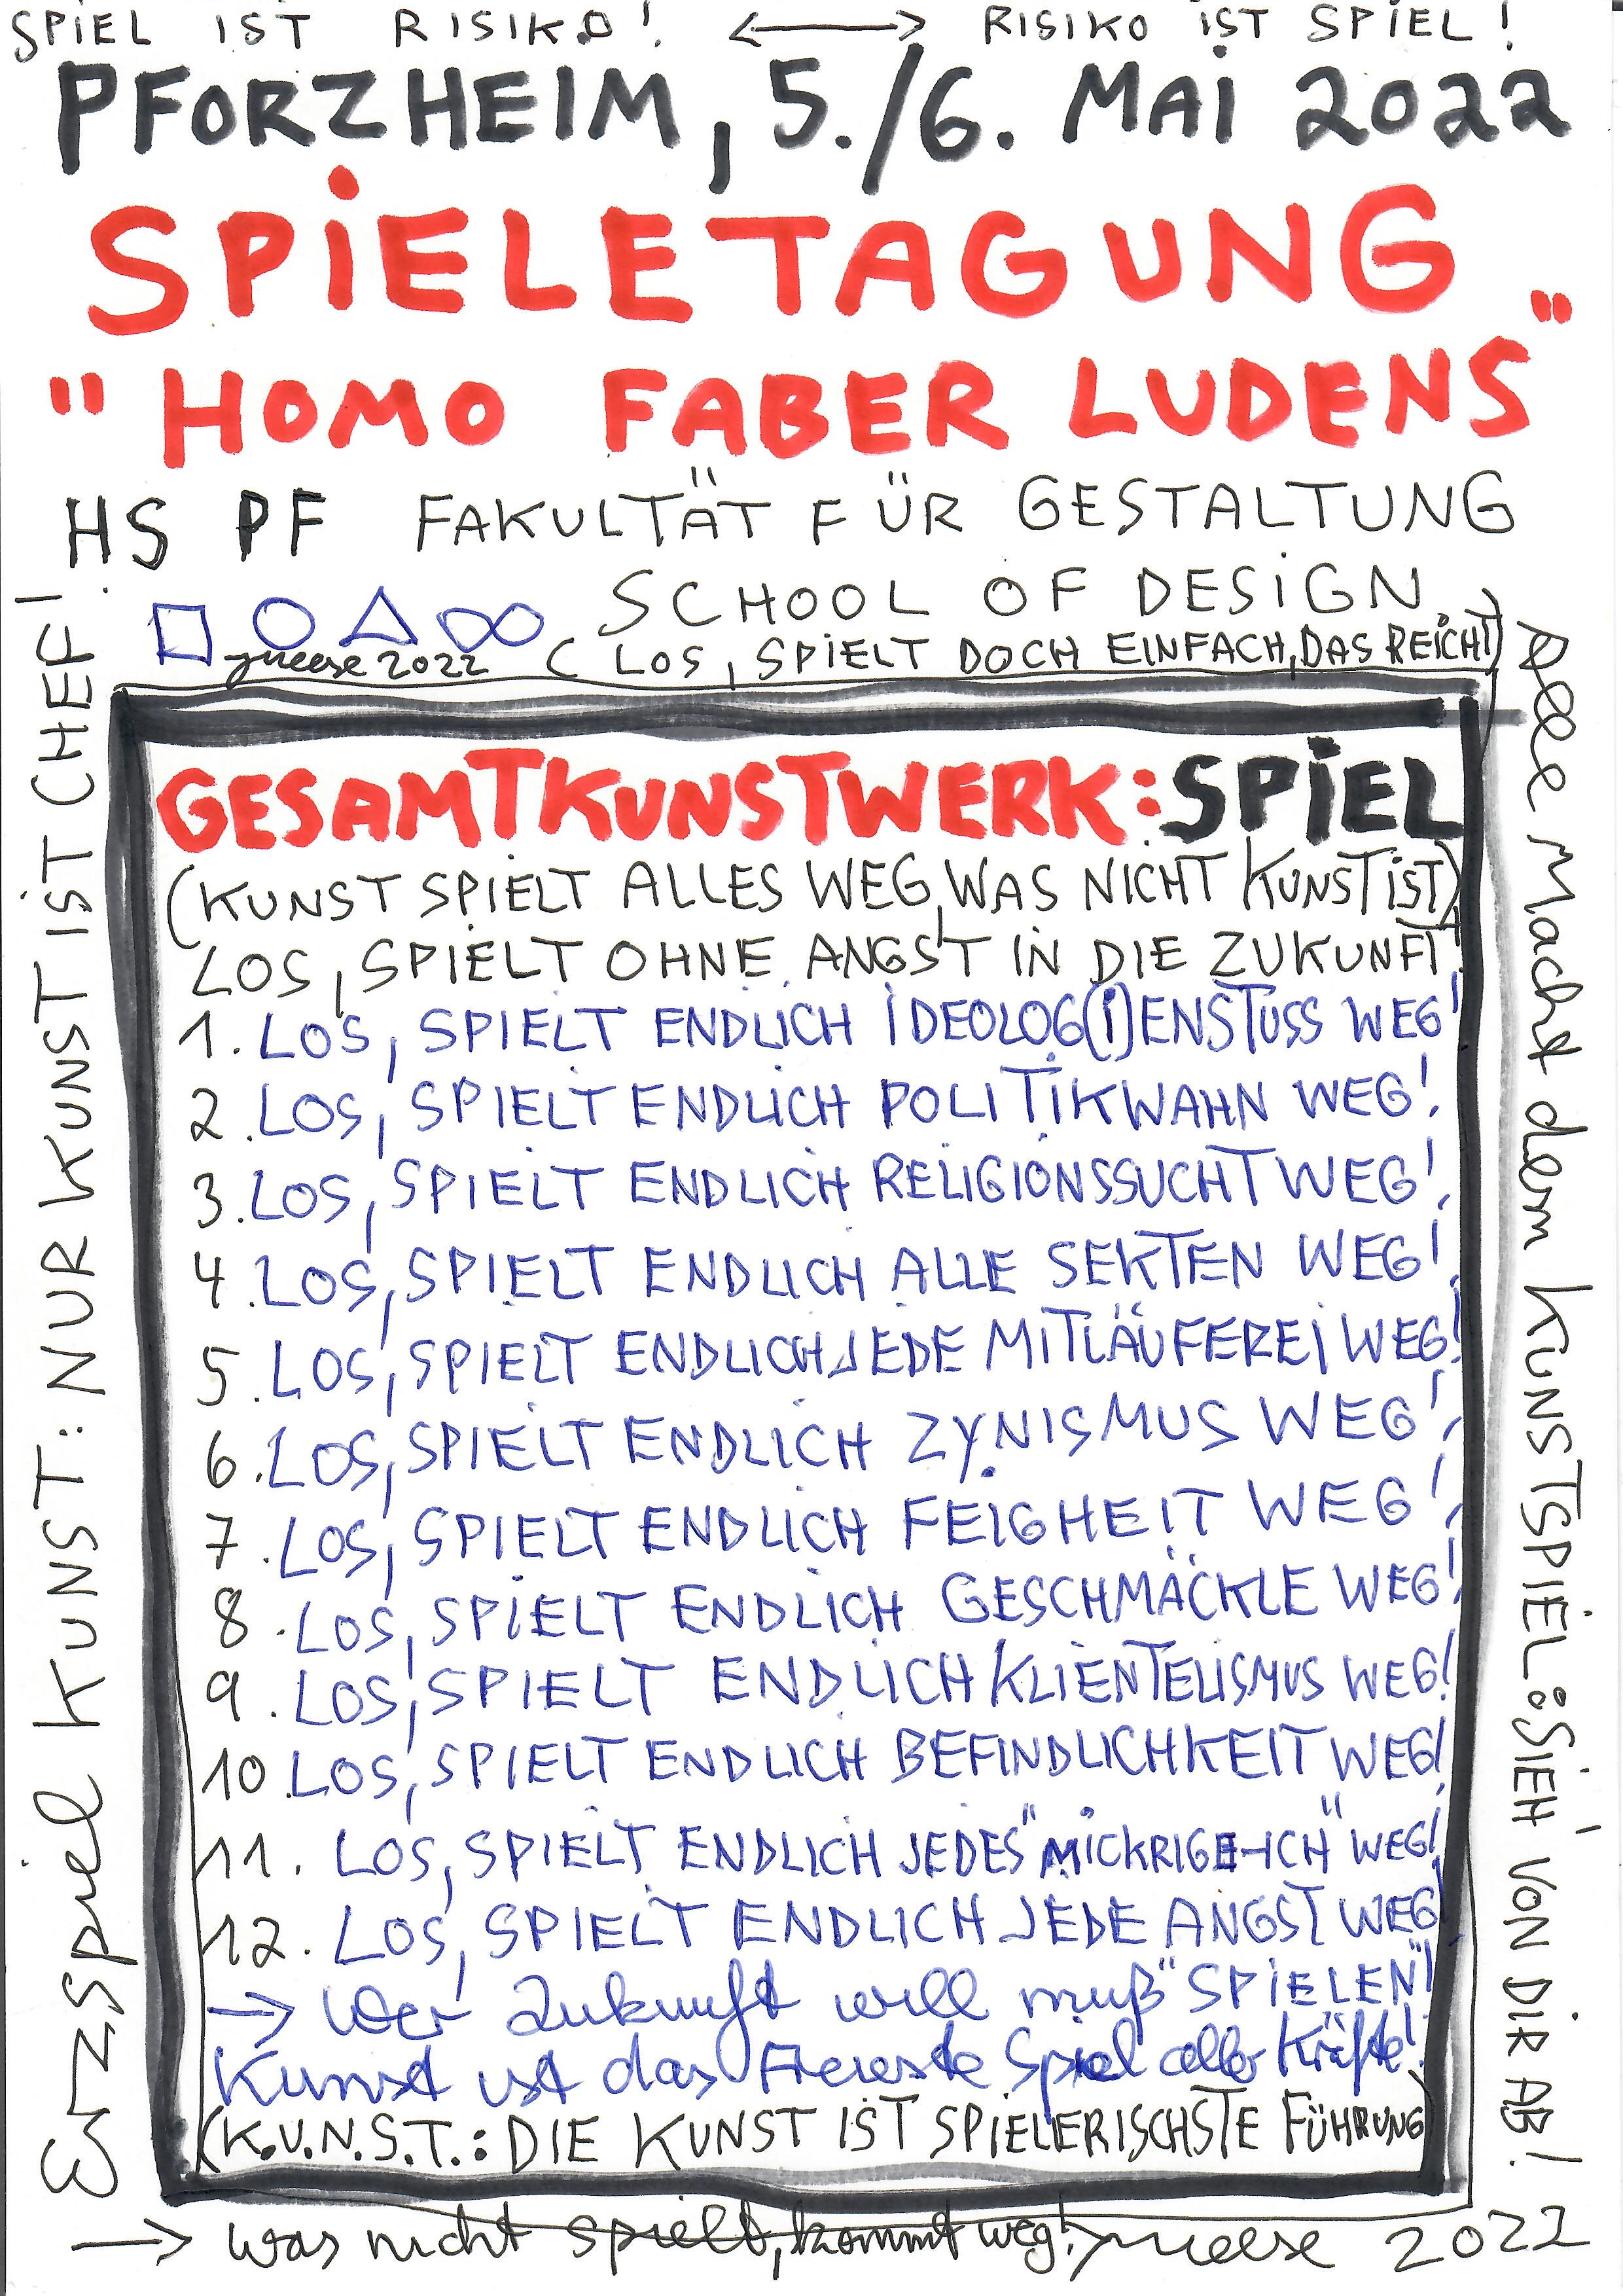 SPIEL IST RISIKO! <-> RISIKO IST SPIEL!
PFORZHEIM, 5./6. MAI 2022
SPIELETAGUNG
"HOMO FABER LUDENS"
HS PF FAKULTÄT FÜR GESTALTUNG
SCHOOL OF DESIGN
JMeese 2022 (LOS, SPIELT DOCH EINFACH, DAS REICHT)
GESAMTKUNSTWERK: SPIEL
(KUNST SPIELT ALLES WEG, WAS NICHT KUNST IST)
LOS, SPIELT OHNE ANGST IN DIE ZUKUNFT!
1. LOS, SPIELT ENDLICH IDEOLOG(I)ENSTUSS WEG!
2. LOS, SPIELT ENDLICH POLITIKWAHN WEG!
3. LOS, SPIELT ENDLICH RELIGIONSSUCHT WEG!
4. LOS, SPIELT ENDLICH ALLE SEKTEN WEG!
5. LOS, SPIELT ENDLICH JEDE MITLÄUFEREI WEG!
6. LOS, SPIELT ENDLICH ZYNISMUS WEG!
7. LOS, SPIELT ENDLICH FEIGHEIT WEG!
8. LOS, SPIELT ENDLICH GESCHMÄCKLE WEG!
9. LOS, SPIELT ENDLICH KLIENTELISMUS WEG!
10. LOS, SPIELT ENDLICH BEFINDLICHKEIT WEG!
11. LOS, SPIELT ENDLICH JEDES "MICKRIGE-ICH" WEG!
12. LOS, SPIELT ENDLICH JEDE ANGST WEG!
→ Wer Zukunft will muß "SPIELEN"!
Kunst ist das Freieste Spiel aller Kräfte!
(K.U.N.S.T.: DIE KUNST IST SPIELERISCHSTE FÜHRUNG)
→ was nicht spielt, kommt weg! JMeese 2022
Erzspiel KUNST: NUR KUNST IST CHEF!
Alle Macht dem KUNSTSPIEL: SIEH VON DIR AB!